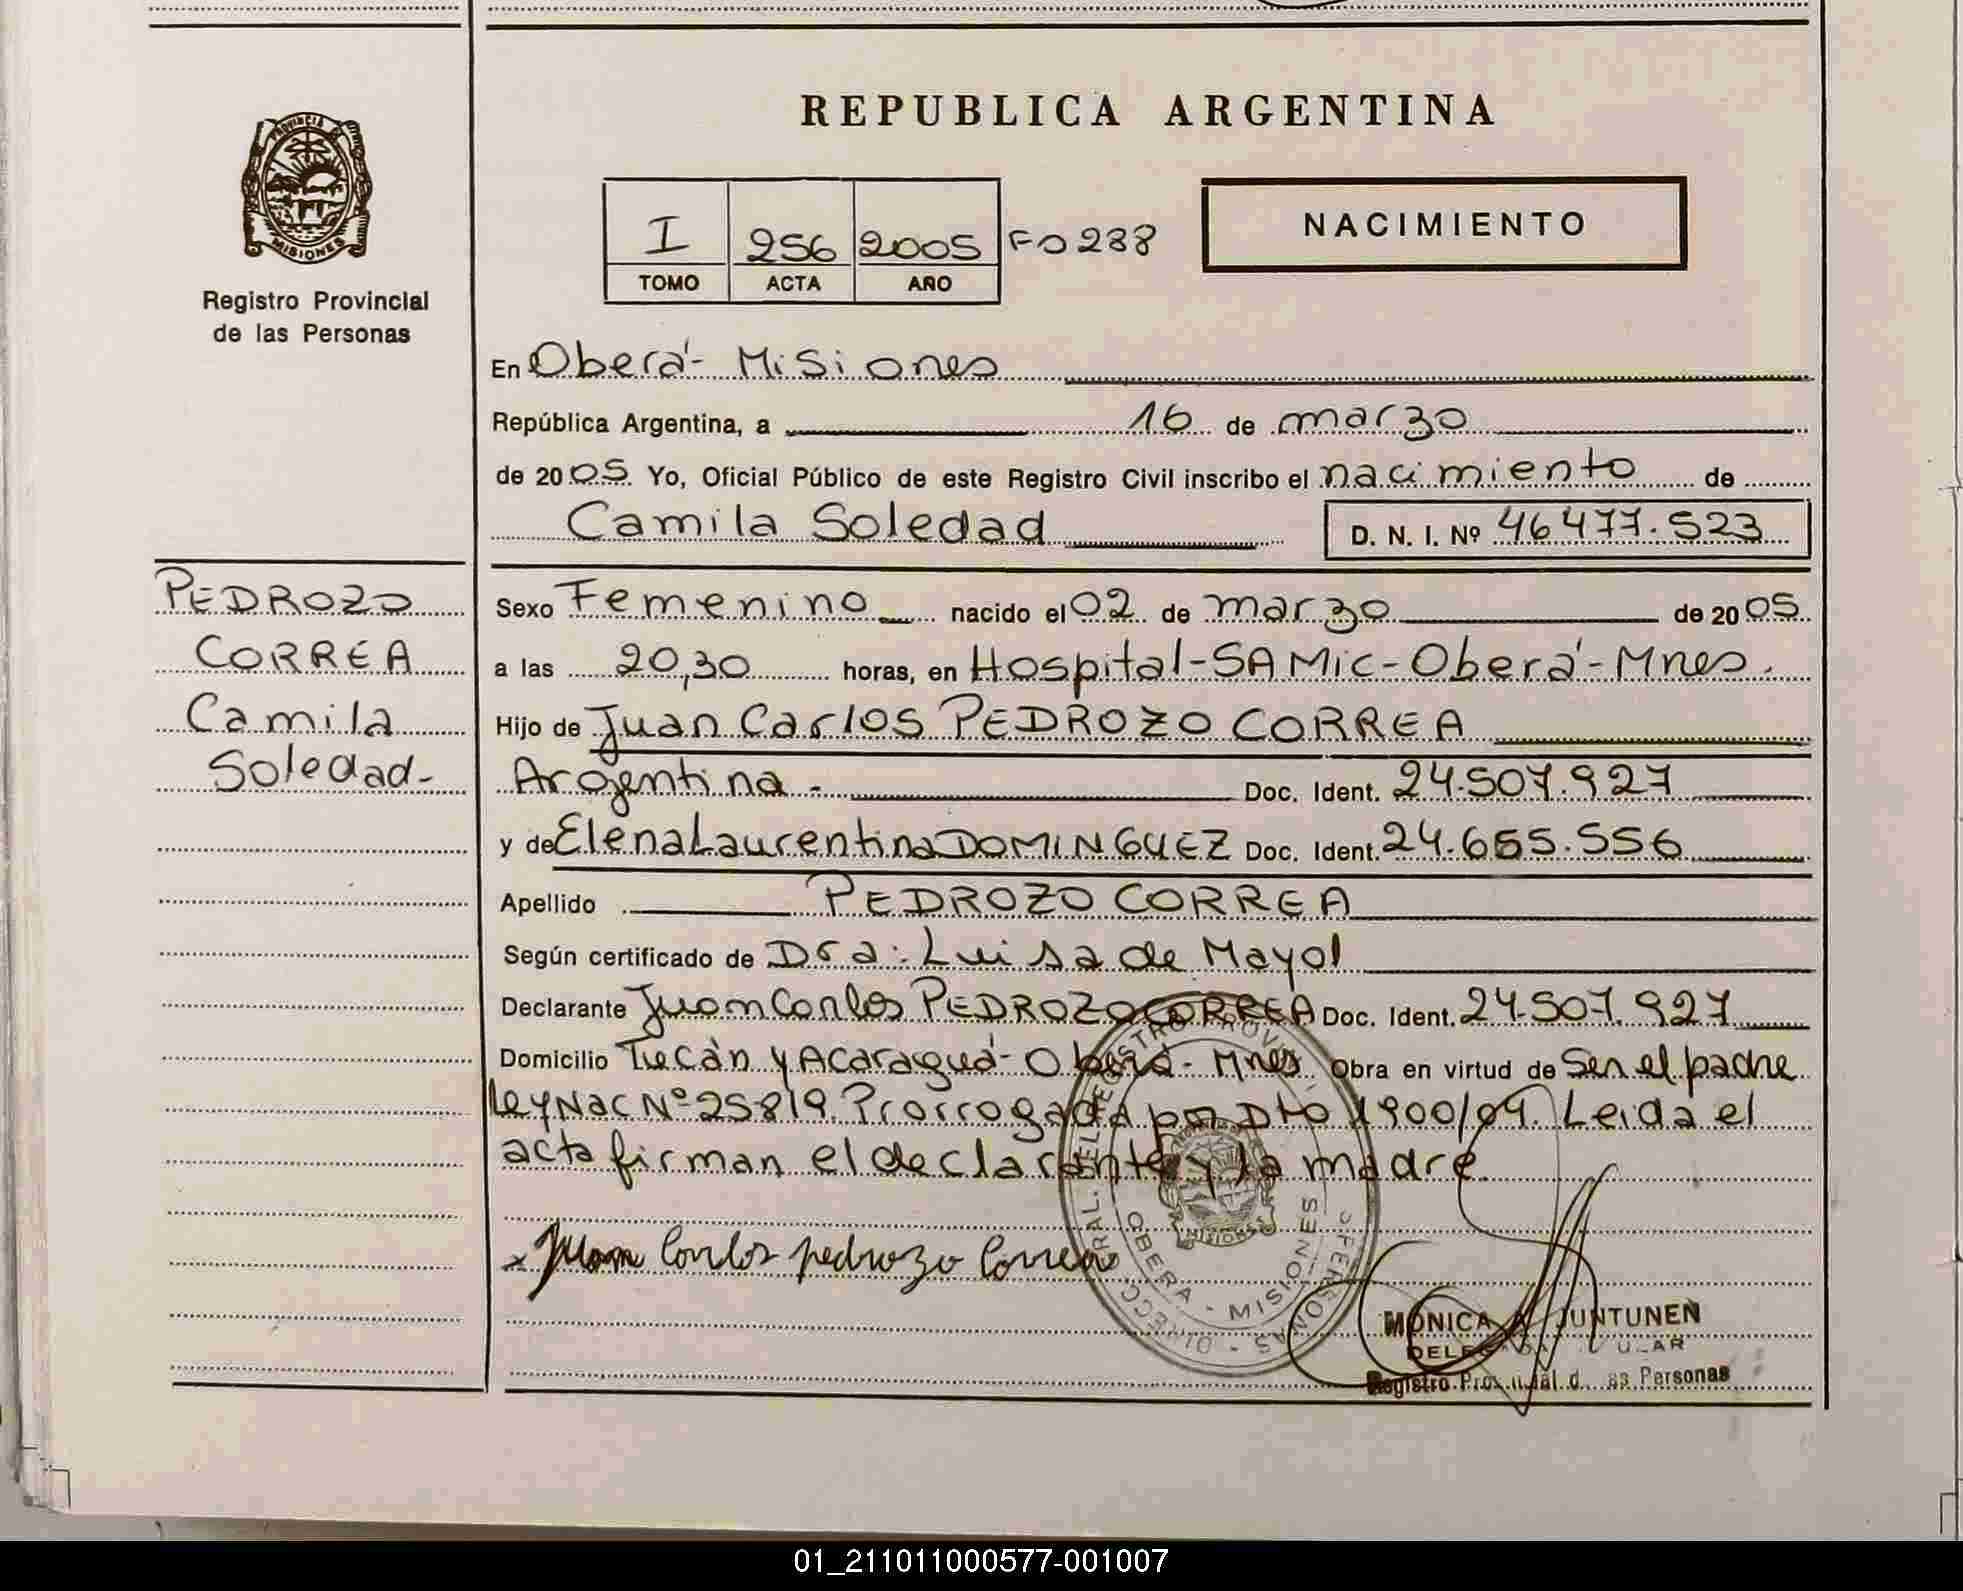 REPUBLICA ARGENTINA
PROVINCIA DE
MISIONES
Registro Provincial
de las Personas
I 256 2005 Fo 288
TOMO ACTA AÑO
NACIMIENTO
En Oberá - Misiones
República Argentina, a 16 de marzo
de 2005. Yo, Oficial Público de este Registro Civil inscribo el nacimiento de
Camila Soledad D. N. I. Nº 46477.523
PEDROZO
CORREA
Camila
Soledad-
Sexo Femenino nacido el 02 de marzo de 2005
a las 20,30 horas, en Hospital-SAMic-Oberá-Mnes.
Hijo de Juan Carlos PEDROZO CORREA
Argentina.- Doc. Ident. 24.507.927
y de Elena Laurentina DOMINGUEZ Doc. Ident. 24.655.556
Apellido PEDROZO CORREA
Según certificado de Dra: Luisa de Mayol
Declarante Juan Carlos PEDROZO CORREA Doc. Ident. 24.507.927
Domicilio Tucán y Acaraguá- Oberá- Mnes Obra en virtud de Ser el padre
Ley Nac Nº 25819. Prorrogada por Dto 1900/04. Leida el
acta firman el declarante y la madre.
x Juan Carlos pedrozo Correa
OBERA - MISIONES
MISIONES
MONICA JUNTUNEN
Registro Provincial d as Personas
01_211011000577-001007